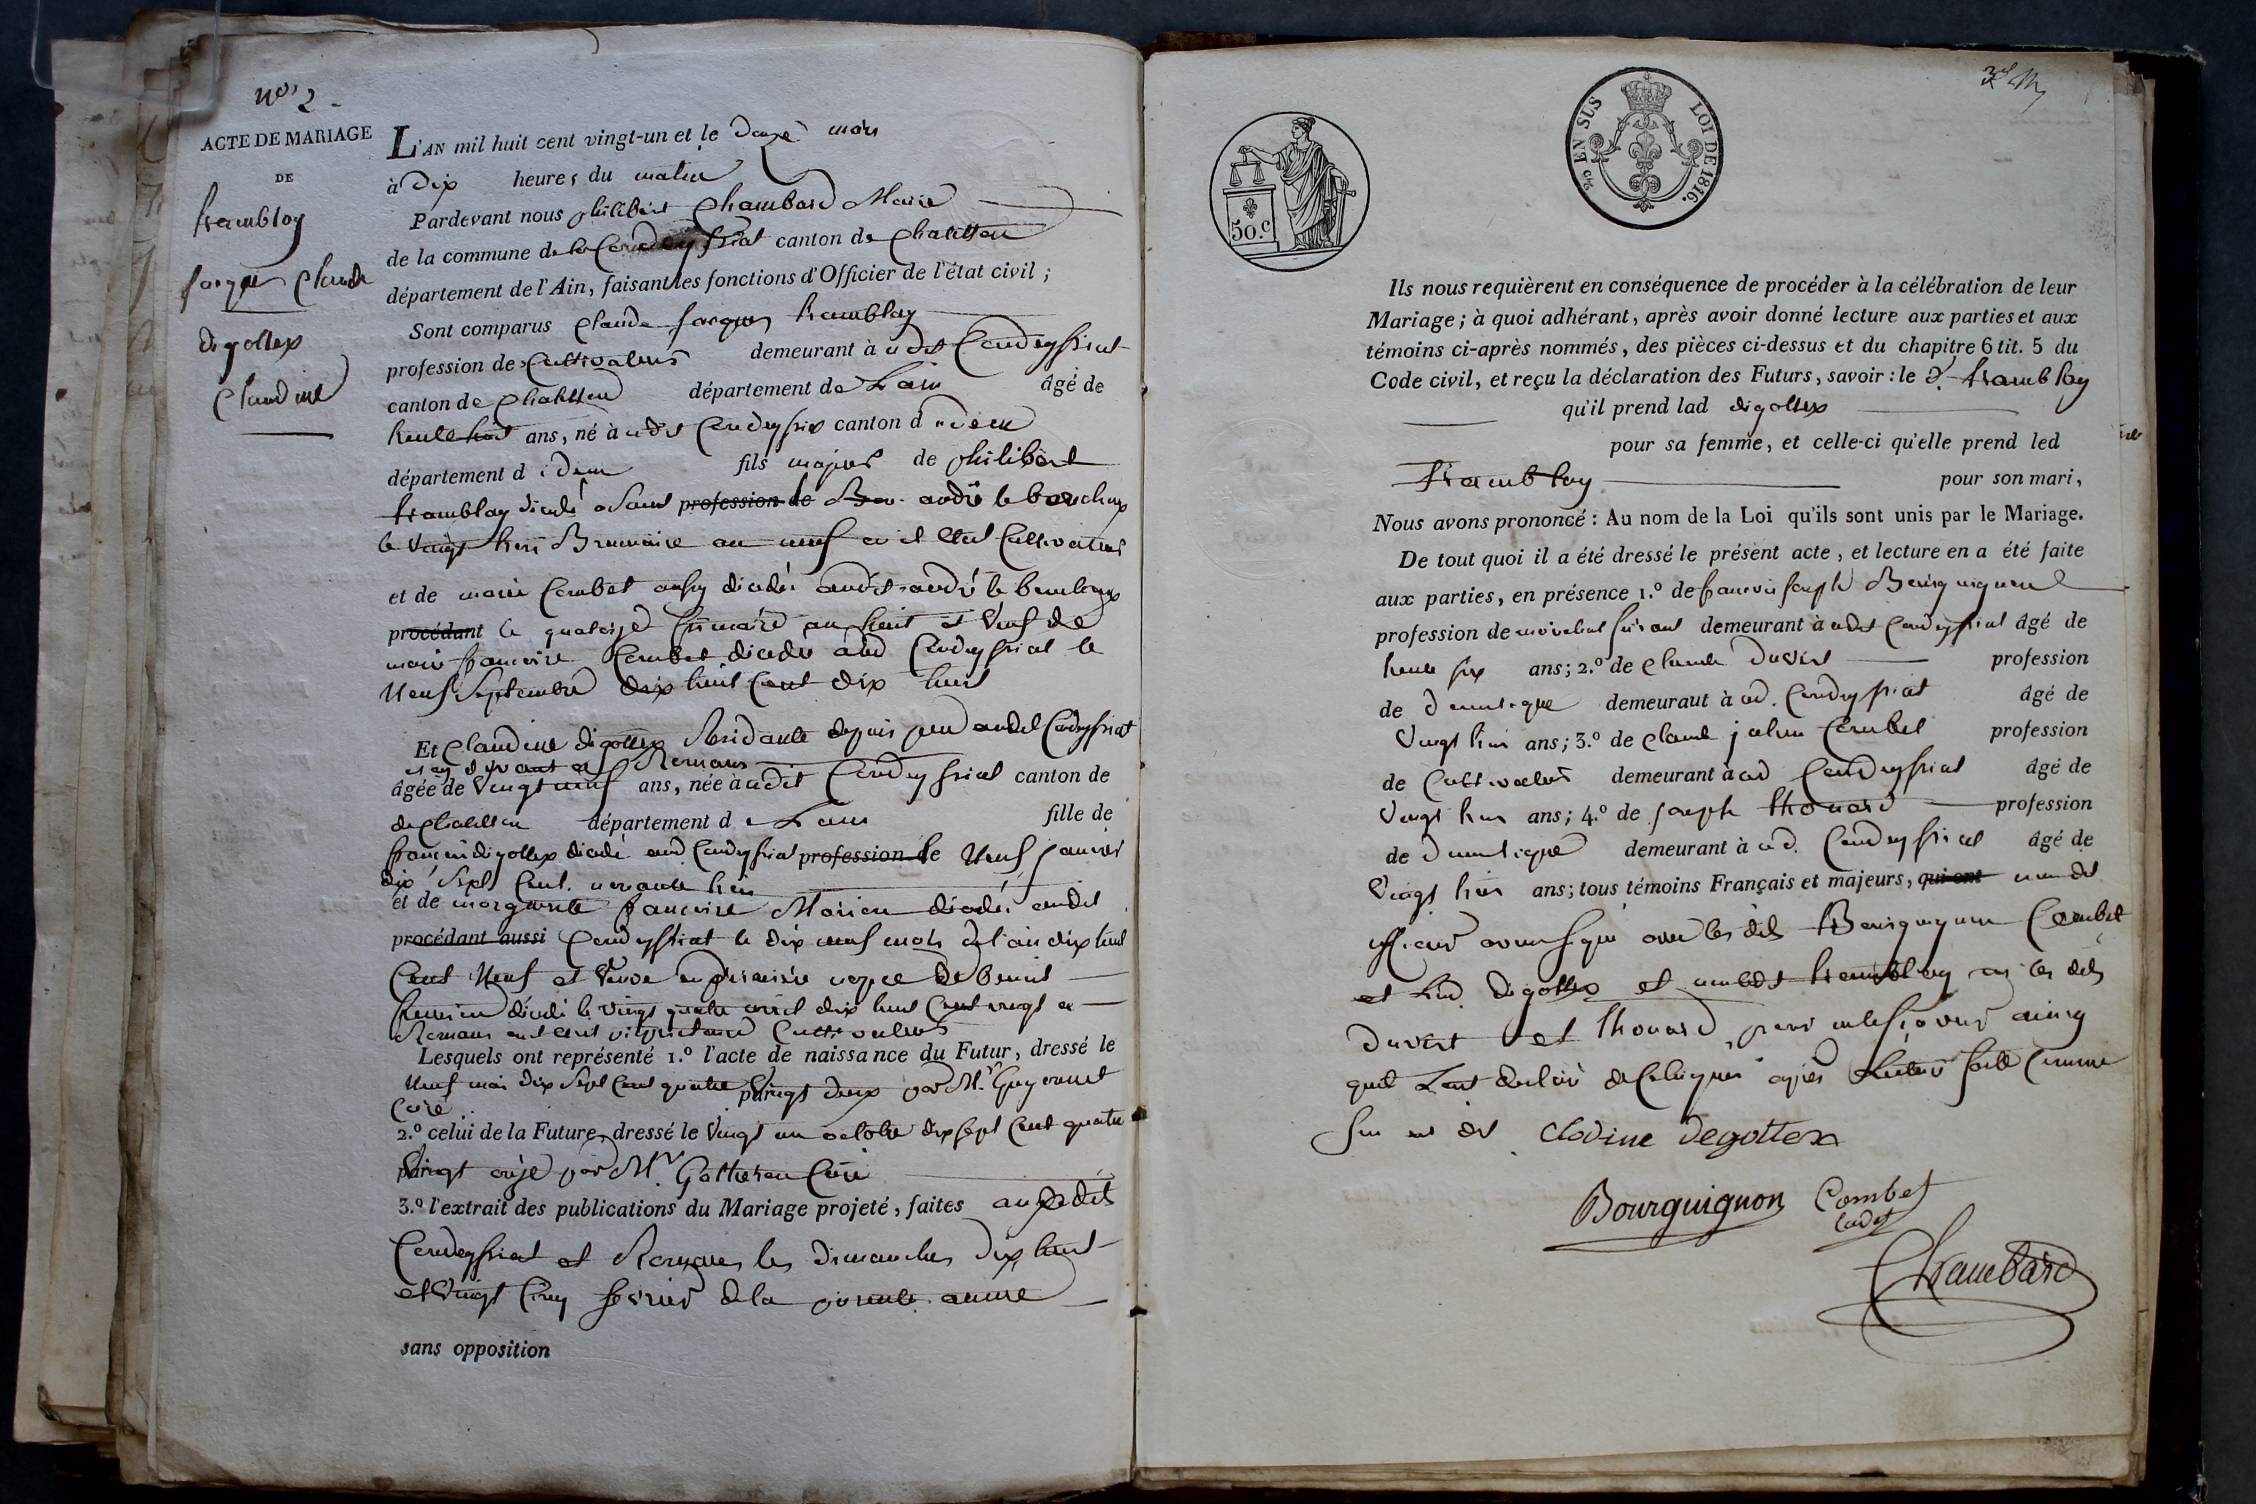 nº 2
ACTE DE MARIAGE
DE
tramblay
Jacques Claude
digottex
Claudine
L'AN mil huit cent vingt-un et le douze mars
à dix heures du matin
Pardevant nous philibert Chambard Maire
de la commune de Condeyssiat canton de Chatillon
département de l'Ain, faisant les fonctions d'Officier de l'état civil ;
Sont comparus Claude Jacques tramblay
profession de Cultivateur demeurant à udit Condeyssiat
canton de Chatillon département de Lain âgé de
trente huit ans, né à udit Condeyssiat canton d idem
département d idem fils majeur de philibert
tramblay décédé a Saint profession de andré le bouchoux
le vingt trois Brumaire an neuf ou il etoit Cultivateur
et de marie Combet aussy décédée audit andré le bouchoux
procédant le quatorze frimaire an huit et veuf de
marie francoise Combet décédée aud Condeyssiat le
Neuf Septembre dix huit Cent dix huit
Et Claudine digottex Residante depuis peu audit Condeyssiat
et cy devant a Romans
âgée de vingt neuf ans, née à udit Condeyssiat canton de
de Chatillon département d e Lain fille de
francois digottex décédé aud Condeyssiat profession de le Neuf Janvier
dix Sept Cent novante trois
et de marguerite francoise Morion décédée audit
procédant aussi Condeyssiat le dix neuf mars de l'an dix huit
Cent Neuf et Veuve en premiere noces de benoit
décédé le vingt quatre avril dix huit Cent vingt a
Romans ou il etoit proprietaire Cultivateur
Lesquels ont représenté 1.º l'acte de naissance du Futur, dressé le
Neuf mai dix Sept Cent quatre vingt deux par Mr Guyonnet
Curé
2.º celui de la Future, dressé le Vingt un octobre dix Sept Cent quatre
vingt onze par Mr Curé
3.º l'extrait des publications du Mariage projeté, faites auxdits
Condeyssiat et Romans les dimanches dix huit
et vingt Cinq fevrier de la présente année
sans opposition
3e
50.c
EN SUS LOI DE 1816.
Ils nous requièrent en conséquence de procéder à la célébration de leur
Mariage ; à quoi adhérant, après avoir donné lecture aux parties et aux
témoins ci-après nommés, des pièces ci-dessus et du chapitre 6 tit. 5 du
Code civil, et reçu la déclaration des Futurs, savoir : le d. tramblay
qu'il prend lad digottex
pour sa femme, et celle-ci qu'elle prend led
tramblay pour son mari,
Nous avons prononcé : Au nom de la Loi qu'ils sont unis par le Mariage.
De tout quoi il a été dressé le présent acte, et lecture en a été faite
aux parties, en présence 1.º de francois Joseph Bourguignon
profession de marechal ferrant demeurant à udit Condeyssiat âgé de
trente six ans ; 2.º de Claude Duvert profession
de domestique demeuraut à ud. Condeyssiat âgé de
Vingt trois ans ; 3.º de Claude Combet profession
de Cultivateur demeurant à ud Condeyssiat âgé de
Vingt trois ans ; 4.º de Joseph thouard profession
de domestique demeurant à ud. Condeyssiat âgé de
Vingt trois ans ; tous témoins Français et majeurs, qui ont
avons signé avec les dits Bourguignon Combet
et lad. digottex et non ledit tramblay ny les dits
Duvert et thouard pour ne le sçavoir ainsy
quil L'ont déclaré de Ce enquis après Lecture faite Comme
Sus est dit clodine degottex
Bourguignon Combet
Cadet
Chambard